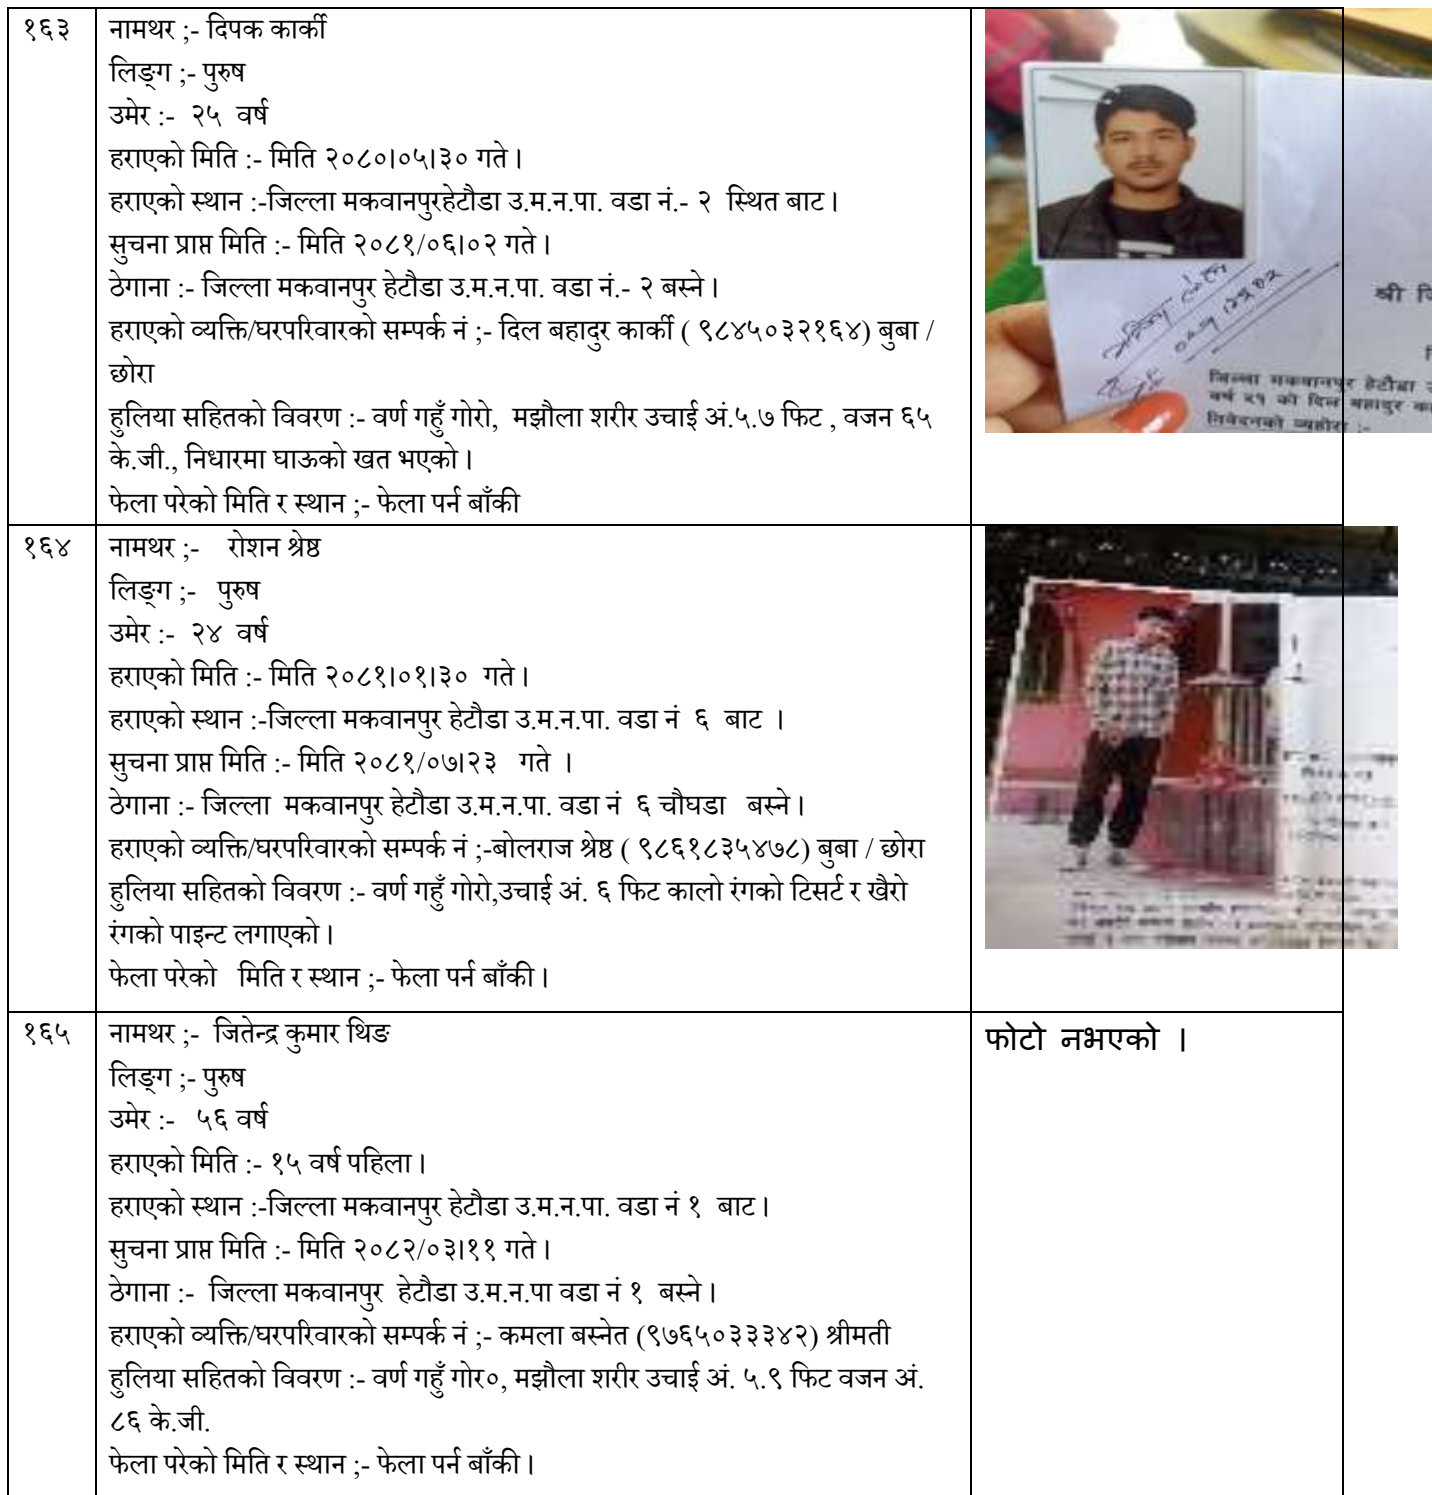 १६३
नामथर ;- दिपक कार्की
लिङ्ग ;- पुरुष
उमेर :- २५ वर्ष
हराएको मिति :- मिति २०८०।०५।३० गते।
हराएको स्थान :-जिल्ला मकवानपुरहेटौडा उ.म.न.पा. वडा नं.- २ स्थित बाट।
सुचना प्राप्त मिति :- मिति २०८१/०६।०२ गते।
ठेगाना :- जिल्ला मकवानपुर हेटौडा उ.म.न.पा. वडा नं.- २ बस्ने।
हराएको व्यक्ति/घरपरिवारको सम्पर्क नं ;- दिल बहादुर कार्की ( ९८४५०३२१६४) बुबा /
छोरा
हुलिया सहितको विवरण :- वर्ण गहुँ गोरो, मझौला शरीर उचाई अं.५.७ फिट , वजन ६५
के.जी., निधारमा घाऊको खत भएको।
फेला परेको मिति र स्थान ;- फेला पर्न बाँकी
श्री जि
जिल्ला मकवानपुर हेटौडा
वर्ष ५१ को दिल बहादुर का
निवेदनको व्यहोरा :-
१६४
नामथर ;- रोशन श्रेष्ठ
लिङ्ग ;- पुरुष
उमेर :- २४ वर्ष
हराएको मिति :- मिति २०८१।०१।३० गते।
हराएको स्थान :-जिल्ला मकवानपुर हेटौडा उ.म.न.पा. वडा नं ६ बाट ।
सुचना प्राप्त मिति :- मिति २०८१/०७।२३ गते ।
ठेगाना :- जिल्ला मकवानपुर हेटौडा उ.म.न.पा. वडा नं ६ चौघडा बस्ने।
हराएको व्यक्ति/घरपरिवारको सम्पर्क नं ;-बोलराज श्रेष्ठ ( ९८६१८३५४७८) बुबा / छोरा
हुलिया सहितको विवरण :- वर्ण गहुँ गोरो,उचाई अं. ६ फिट कालो रंगको टिसर्ट र खैरो
रंगको पाइन्ट लगाएको।
फेला परेको मिति र स्थान ;- फेला पर्न बाँकी।
१६५
नामथर ;- जितेन्द्र कुमार थिङ
लिङ्ग ;- पुरुष
उमेर :- ५६ वर्ष
हराएको मिति :- १५ वर्ष पहिला।
हराएको स्थान :-जिल्ला मकवानपुर हेटौडा उ.म.न.पा. वडा नं १ बाट।
सुचना प्राप्त मिति :- मिति २०८२/०३।११ गते।
ठेगाना :- जिल्ला मकवानपुर हेटौडा उ.म.न.पा वडा नं १ बस्ने।
हराएको व्यक्ति/घरपरिवारको सम्पर्क नं ;- कमला बस्नेत (९७६५०३३३४२) श्रीमती
हुलिया सहितको विवरण :- वर्ण गहुँ गोर०, मझौला शरीर उचाई अं. ५.९ फिट वजन अं.
८६ के.जी.
फेला परेको मिति र स्थान ;- फेला पर्न बाँकी।
फोटो नभएको ।